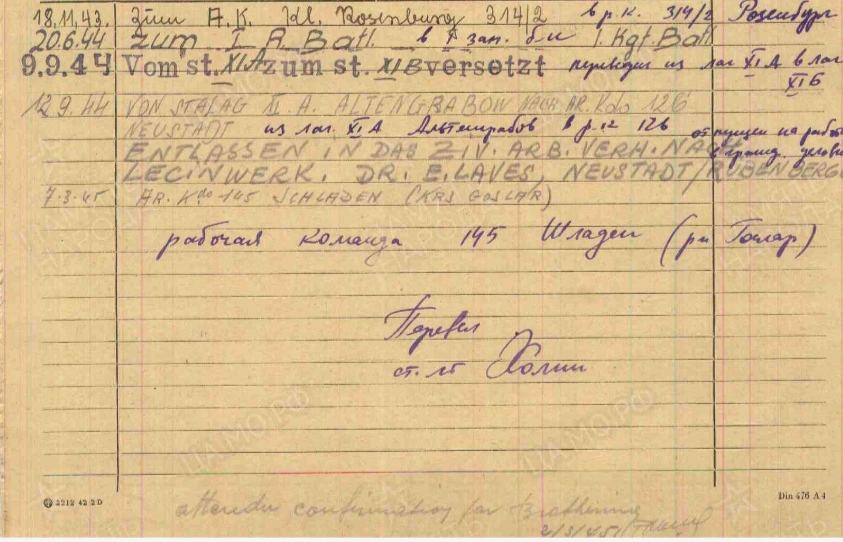 18.11.43. Zum A.K. Kl. Rosenburg 314/2 в р.к. 314/2 Розенбург
20.6.44 Zum I R. Batl. в I зап. б-н I. Kgf. Batl
9.9.44 Vom st. XIA zum st. XIB versetzt переведен из лаг XI А в лаг
XI Б
12.9.44 VON STALAG XI. A. ALTENGRABOW NACH AR. Kdo 126
NEUSTADT из лаг. XI А Альтенграбов в р. 126 отпущен на работ
ENTLASSEN IN DAS ZIV. ARB. VERH. NACH
LECINWERK. DR. E. LAVES, NEUSTADT/RÜBENBERGE
7.3.45 AR. Kdo 145 SCHLADEN (KRS GOSLAR)
рабочая команда 145 Шладен (рн Гослар)
Перевел
ст. лт
2212 42 2D Din 476 A4
confirmation for
2/3/45
ЦАМО РФ